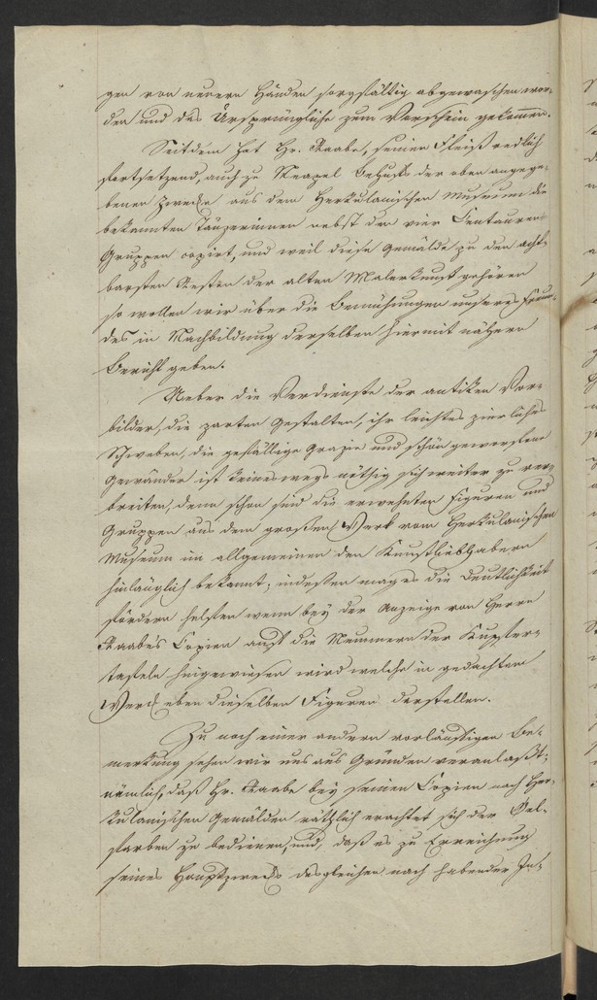 gen von neuern Händen sorgfältig abgewaschen wor-
den und das Ursprüngliche zum Vorschein gekommen.
Seitdem hat Hr. Raabe, seinen Fleiß redlich
fortsetzend, auch zu Neapel behufs der oben angege-
benen Zwecke aus dem Herkulanischen Museum die
bekannten Tänzerinnen nebst den vier Centauren
Gruppen copirt, und weil diese Gemälde zu den acht-
barsten Resten der alten Malerkunst gehören
so wollen wir über die Bemühungen unseres Freun-
des in Nachbildung derselben hiermit nähern
Bericht geben.
Ueber die Verdienste der antiken Vor-
bilder, die zarten Gestalten, ihr leichtes zierliches
Schweben, die gefällige Grazie und schön geworfene
Gewänder ist keineswegs nöthig sich weiter zu ver-
breiten, denn schon sind die erwehnten Figuren und
Gruppen aus dem großen Werk vom Herkulanischen
Museum im allgemeinen den Kunstliebhabern
hinlänglich bekannt; indessen mag es die Deutlichkeit
fördern helfen wenn bey der Anzeige von Herrn
Raabes Copien auf die Nummern der Kupfer-
tafeln hingewiesen wird welche in gedachtem
Werck eben dieselben Figuren darstellen.
Zu noch einer andern vorläufigen Be-
merkung sehen wir uns aus Gründen veranlaßt;
nämlich, daß Hr. Raabe bey seinen Copien nach Her-
kulanischen Gemälden räthlich erachtet sich der Oel-
farben zu bedienen, und, daß es zu Erreichung
seines Hauptzwecks desgleichen nach habender In-